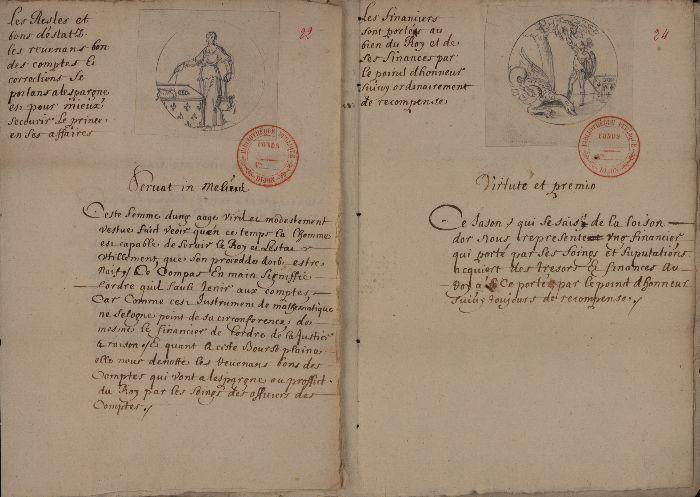 Les Restes et
bons d'estatz.
les revenans bon
des comptes &
corrections se
portans a lespargne
est pour mieux
secourir le prince
en ses affaires
22
BIBLIOTHÈQUE PUBLIQUE
FONDS
DIJON
Servat in melius
Ceste femme dung aage viril et modestement
vestue faict veoir quen ce temps la lhomme
est capable de servir le Roy et lestat
utillement, que son procedde doibt estre
naif, Le Compas en main signiffie
lordre quil fault tenir aux comptes,
Car comme cest Instrument de mathematique
ne seloigne point de sa circonference, de
mesme le financier de lordre de la Justice
& raison, Et quant a ceste Bourse plaine
elle nous denotte les Revenans bons des
Comptes qui vont a lespargne au proffict
du Roy par les soings des officiers des
Comptes,
Les financiers
sont portés au
bien du Roy et de
ses finances par
le point dhonneur
suivy ordinairement
de recompense
24
BIBLIOTHÈQUE PUBLIQUE
FONDS
DIJON
Virtute et premio
Ce Jason, qui se saisit de la toison
dor Nous represente ung financier
qui porté par ses soings et suputations
acquiert des tresors & finances au
Roy & Ce porté par le point dhonneur
suivy toujours de recompense,